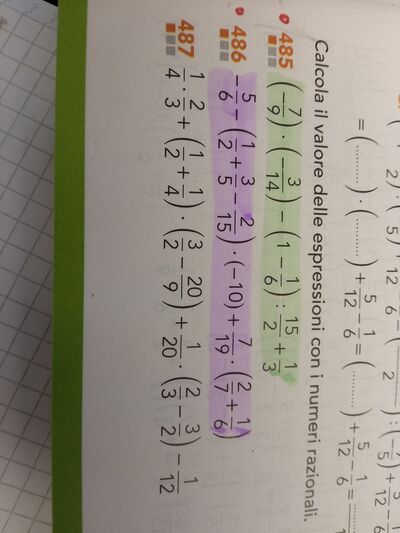 = (........) · (........) + 5/12 − 1/6 = (........) + 5/12 − 1/6 = ........
Calcola il valore delle espressioni con i numeri razionali.
485 (−7/9) · (−3/14) − (1 − 1/6) : 15/2 + 1/3
486 −5/6 − (1/2 + 3/5 − 2/15) · (−10) + 7/19 · (2/7 + 1/6)
487 1/4 · 2/3 + (1/2 + 1/4) · (3/2 − 20/9) + 1/20 · (2/3 − 3/2) − 1/12